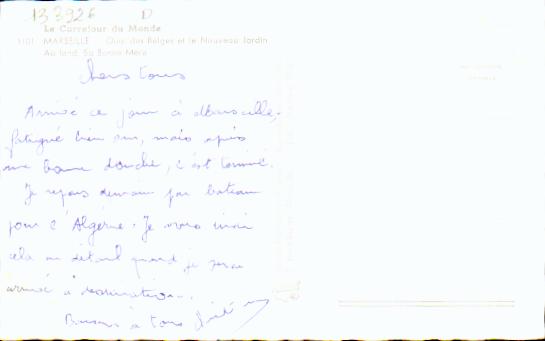 133926 D
Le Carrefour du Monde
1101 MARSEILLE Quai des Belges et le Nouveau Jardin
Au fond, Sa Bonne Mère
Chers tous
Arrivé ce jour à Marseille,
fatigué bien sur, mais après
une bonne douche, c'est terminé.
Je repars demain par bateau
pour l'Algérie. Je vous
cela en détail quand je serai
arrivé à destination.
Bisous à tous